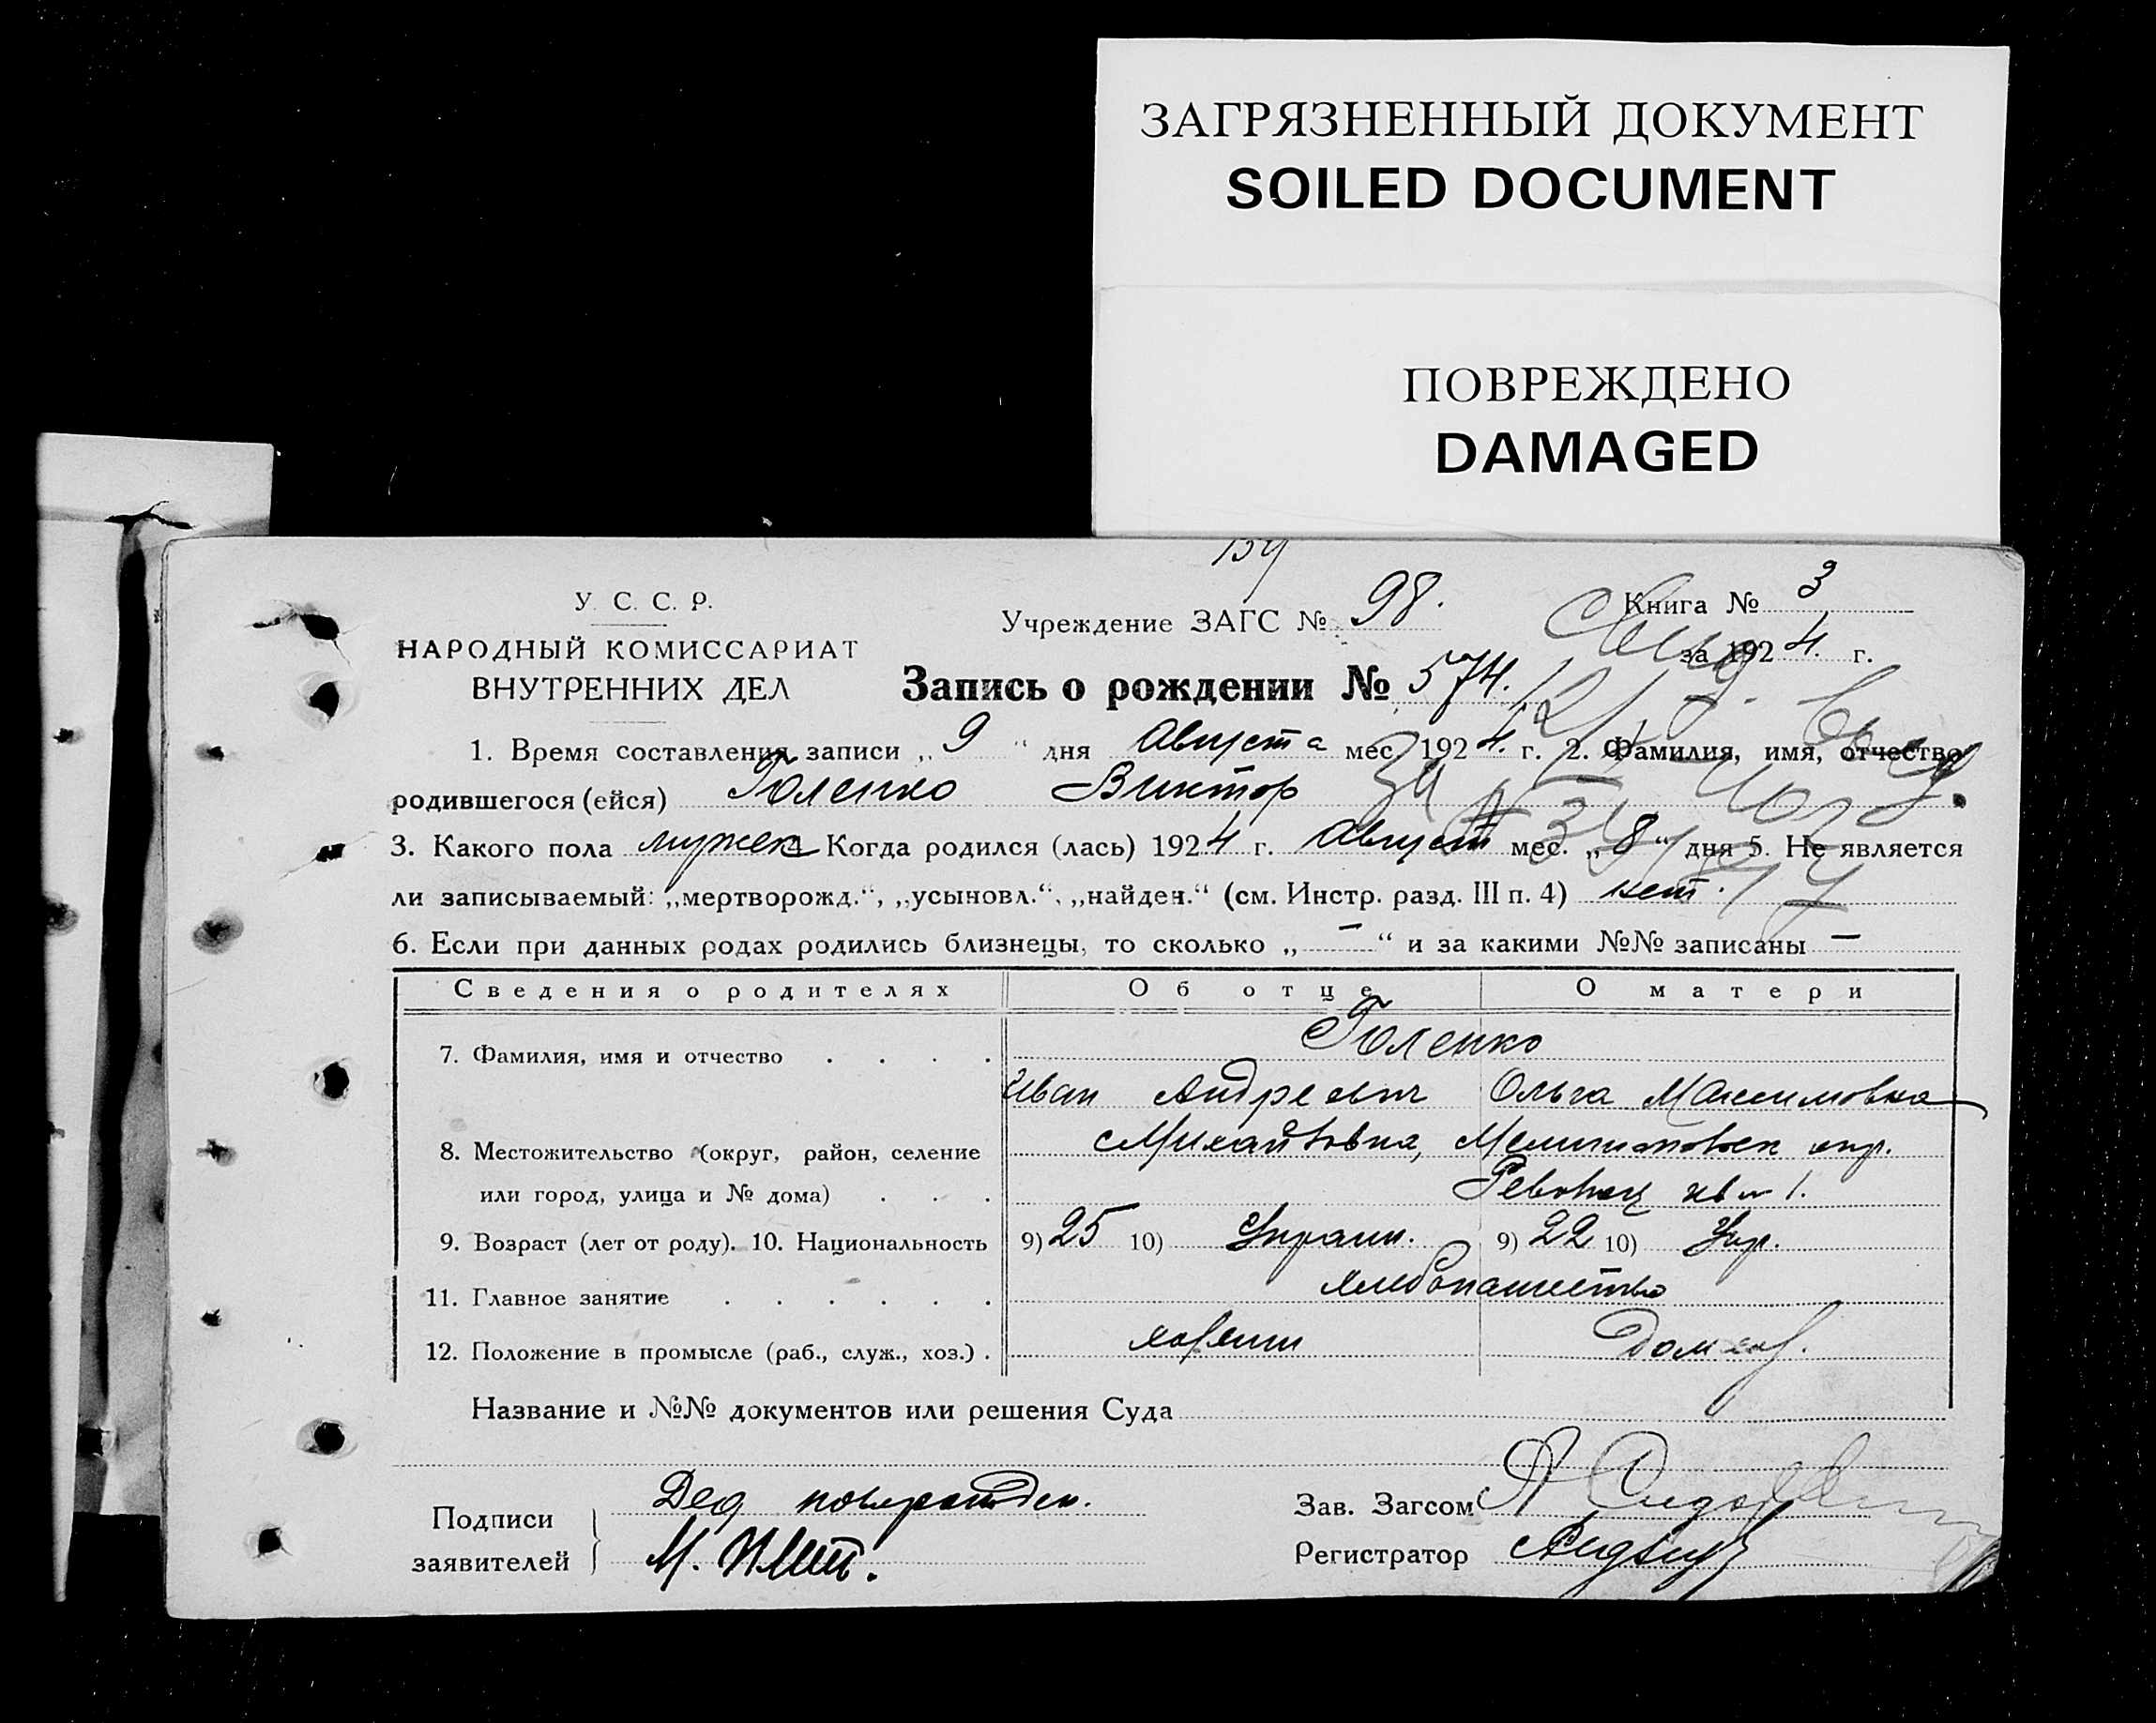 ЗАГРЯЗНЕННЫЙ ДОКУМЕНТ
SOILED DOCUMENT
ПОВРЕЖДЕНО
DAMAGED
У. С. С. Р.
НАРОДНЫЙ КОМИССАРИАТ
ВНУТРЕННИХ ДЕЛ
Учреждение ЗАГС № 98.
Книга № 3
за 1924 г.
Запись о рождении № 574.
1. Время составления записи „ 9 “ дня Августа мес. 1924 г. 2. Фамилия, имя, отчество
родившегося (ейся) Голенко Виктор
3. Какого пола мужск Когда родился (лась) 1924 г. Август мес. „ 8 “ дня 5. Не является
ли записываемый: „мертворожд.“, „усыновл.“, „найден.“ (см. Инстр. разд. III п. 4) нет.
6. Если при данных родах родились близнецы, то сколько „ — “ и за какими №№ записаны —
Сведения о родителях Об отце О матери
7. Фамилия, имя и отчество . . . . Голенко
Иван Андреевич Ольга Максимовна
8. Местожительство (округ, район, селение Михайловка,
или город, улица и № дома) . . . 1.
9. Возраст (лет от роду). 10. Национальность 9) 25 10) Украин. 9) 22 10) Укр.
11. Главное занятие . . . . . . хлебопашество
12. Положение в промысле (раб., служ., хоз.) . хозяин Дом хоз.
Название и №№ документов или решения Суда
Подписи
заявителей
Дед
М.
Зав. Загсом
Регистратор